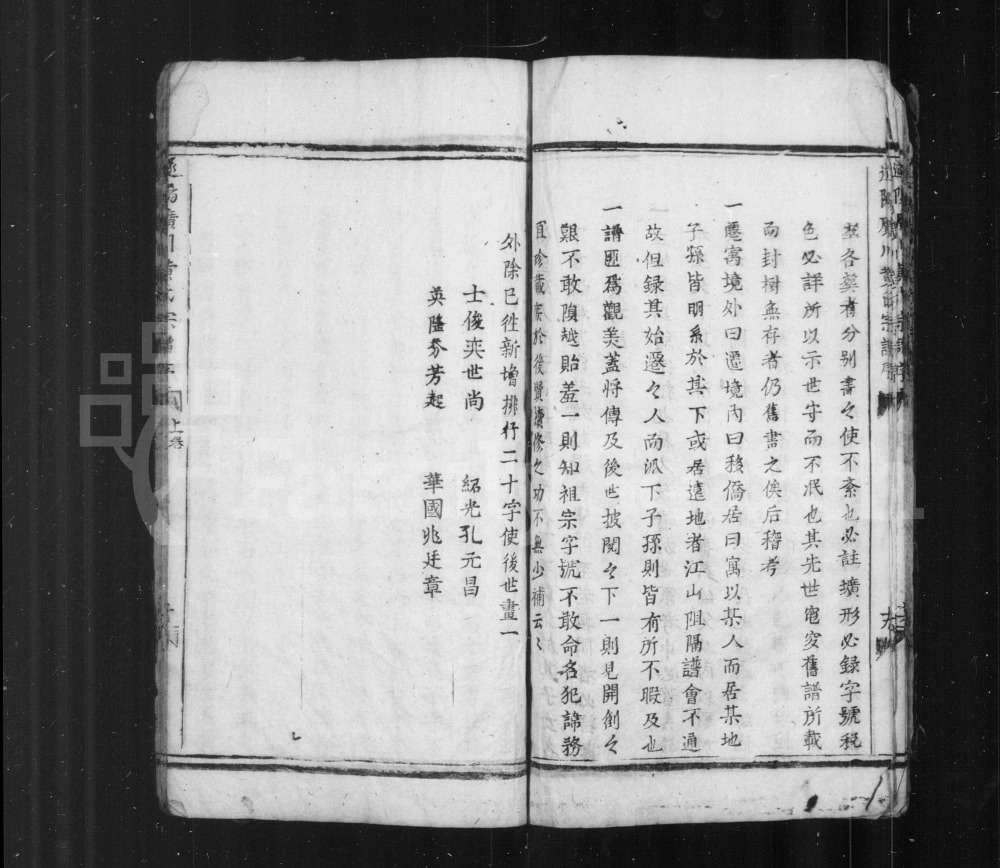 各塟者分别書々使不紊也必註壙形必録字號税
色必詳所以示世守而不泯也其先世窀穸舊譜所載
而封樹無存者仍舊書之俟后稽考
一遷寓境外曰遷境內曰移僑居曰寓以某人而居某地
子孫皆明系於其下或居遠地者江山阻隔譜會不通
故但録其始遷々人而派下子孫則皆有所不暇及也
一譜匪爲觀美蓋將傳及後世披閲々下一則見開創々
艱不敢隕越貽羞一則知祖宗字號不敢命名犯諱務
宜珍藏 於後賢續修之功不無少補云々
外除已徃新增排行二十字使後世畫一
士俊奕世尚 紹光孔元昌
英隆芬芳起 華國兆廷章
上卷